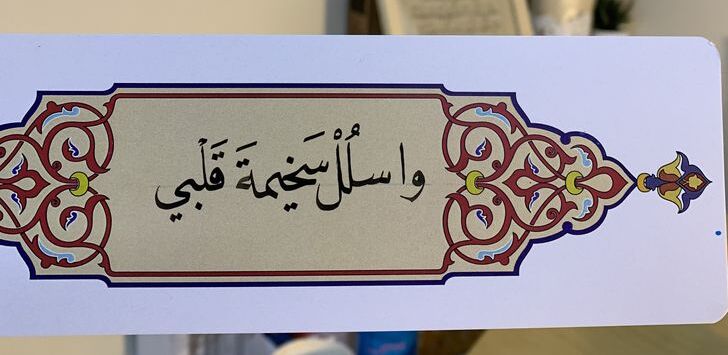 واسلُلْ سَخيمةَ قَلْبي